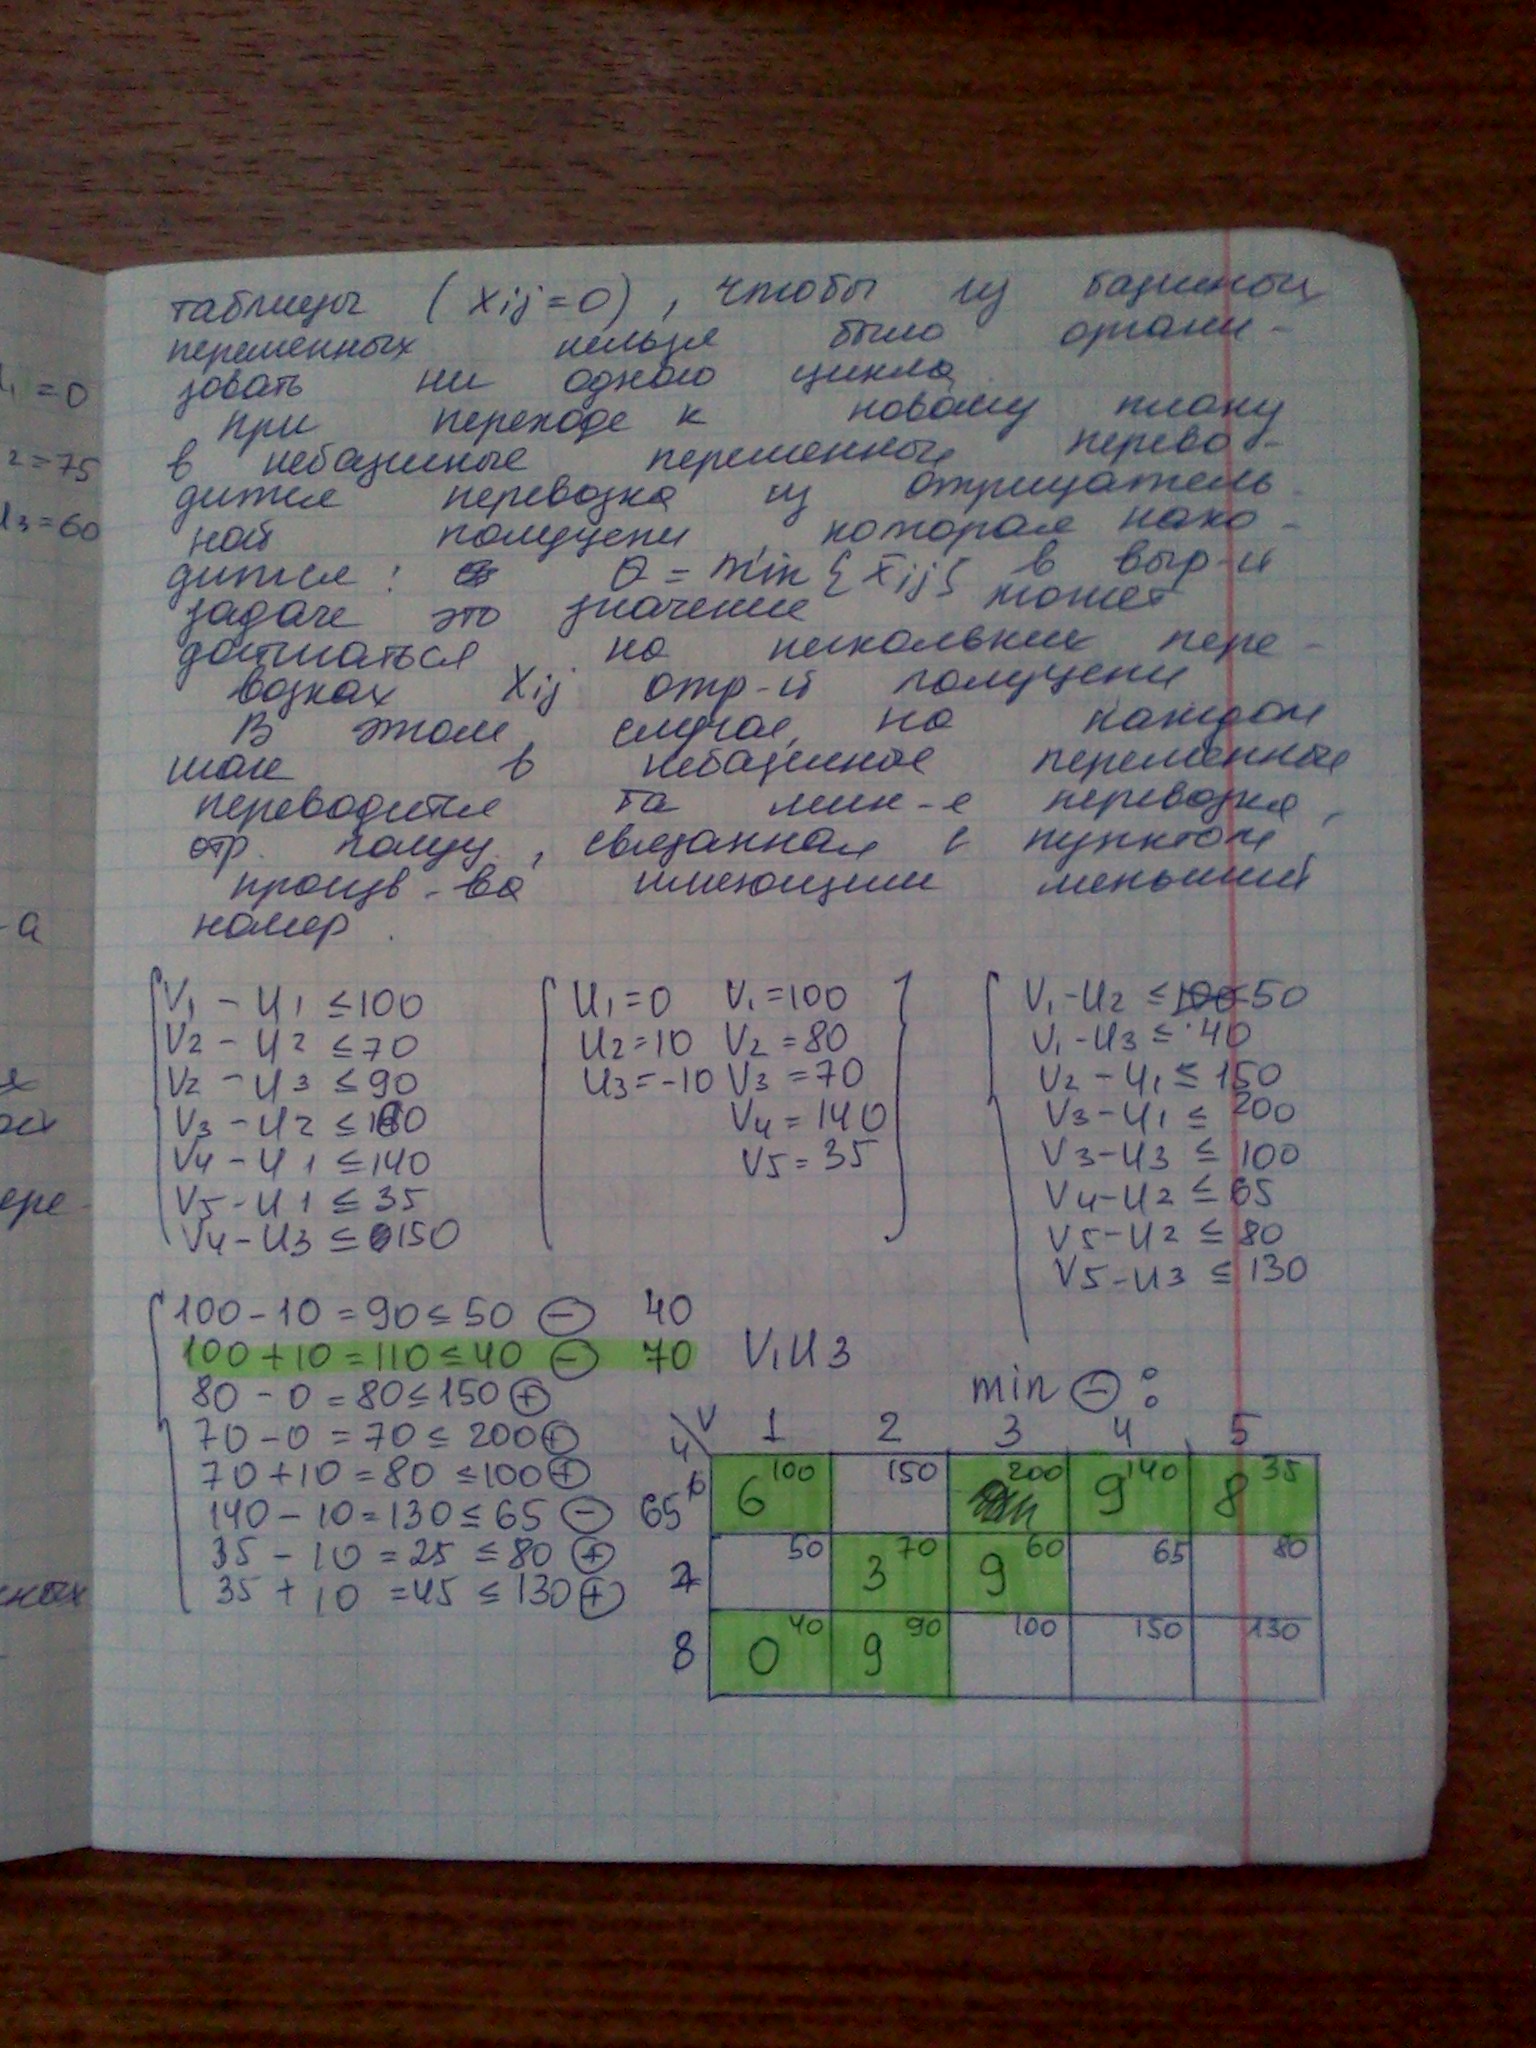 таблицы (Xij=0), чтобы из базисных
переменных нельзя было органи-
зовать ни одного цикла
При переходе к новому плану
в небазисные переменные перево-
дится перевозка из отрицатель-
ной полуцепи, которая нахо-
дится: θ = min {Xij} в выр-й
задаче это значение может
достигаться на нескольких пере-
возках Xij отр-й полуцепи
В этом случае, на каждом
шаге в небазисное переменные
переводится та мин-я перевозка,
отр. полуц., связанная с пунктом
произв-ва имеющим меньший
номер.
V1 - U1 ≤ 100
V2 - U2 ≤ 70
V2 - U3 ≤ 90
V3 - U2 ≤
V4 - U1 ≤ 140
V5 - U1 ≤ 35
V4 - U3 ≤ 150
U1 = 0 V1 = 100
U2 = 10 V2 = 80
U3 = -10 V3 = 70
V4 = 140
V5 = 35
V1 - U2 ≤ 50
V1 - U3 ≤ 40
V2 - U1 ≤ 150
V3 - U1 ≤ 200
V3 - U3 ≤ 100
V4 - U2 ≤ 65
V5 - U2 ≤ 80
V5 - U3 ≤ 130
100 - 10 = 90 ≤ 50 ⊖ 40
100 + 10 = 110 ≤ 40 ⊖ 70 V1U3
80 - 0 = 80 ≤ 150 ⊕
70 - 0 = 70 ≤ 200 ⊕
70 + 10 = 80 ≤ 100 ⊕
140 - 10 = 130 ≤ 65 ⊖ 65
35 - 10 = 25 ≤ 80 ⊕
35 + 10 = 45 ≤ 130 ⊕
min ⊖ :
U V 1 2 3 4 5
6 100 150 200 9 140 8 35
50 3 70 9 60 65 80
8 0 40 9 90 100 150 130
U1 = 0
2 = 75
U3 = 60
-а
ере-